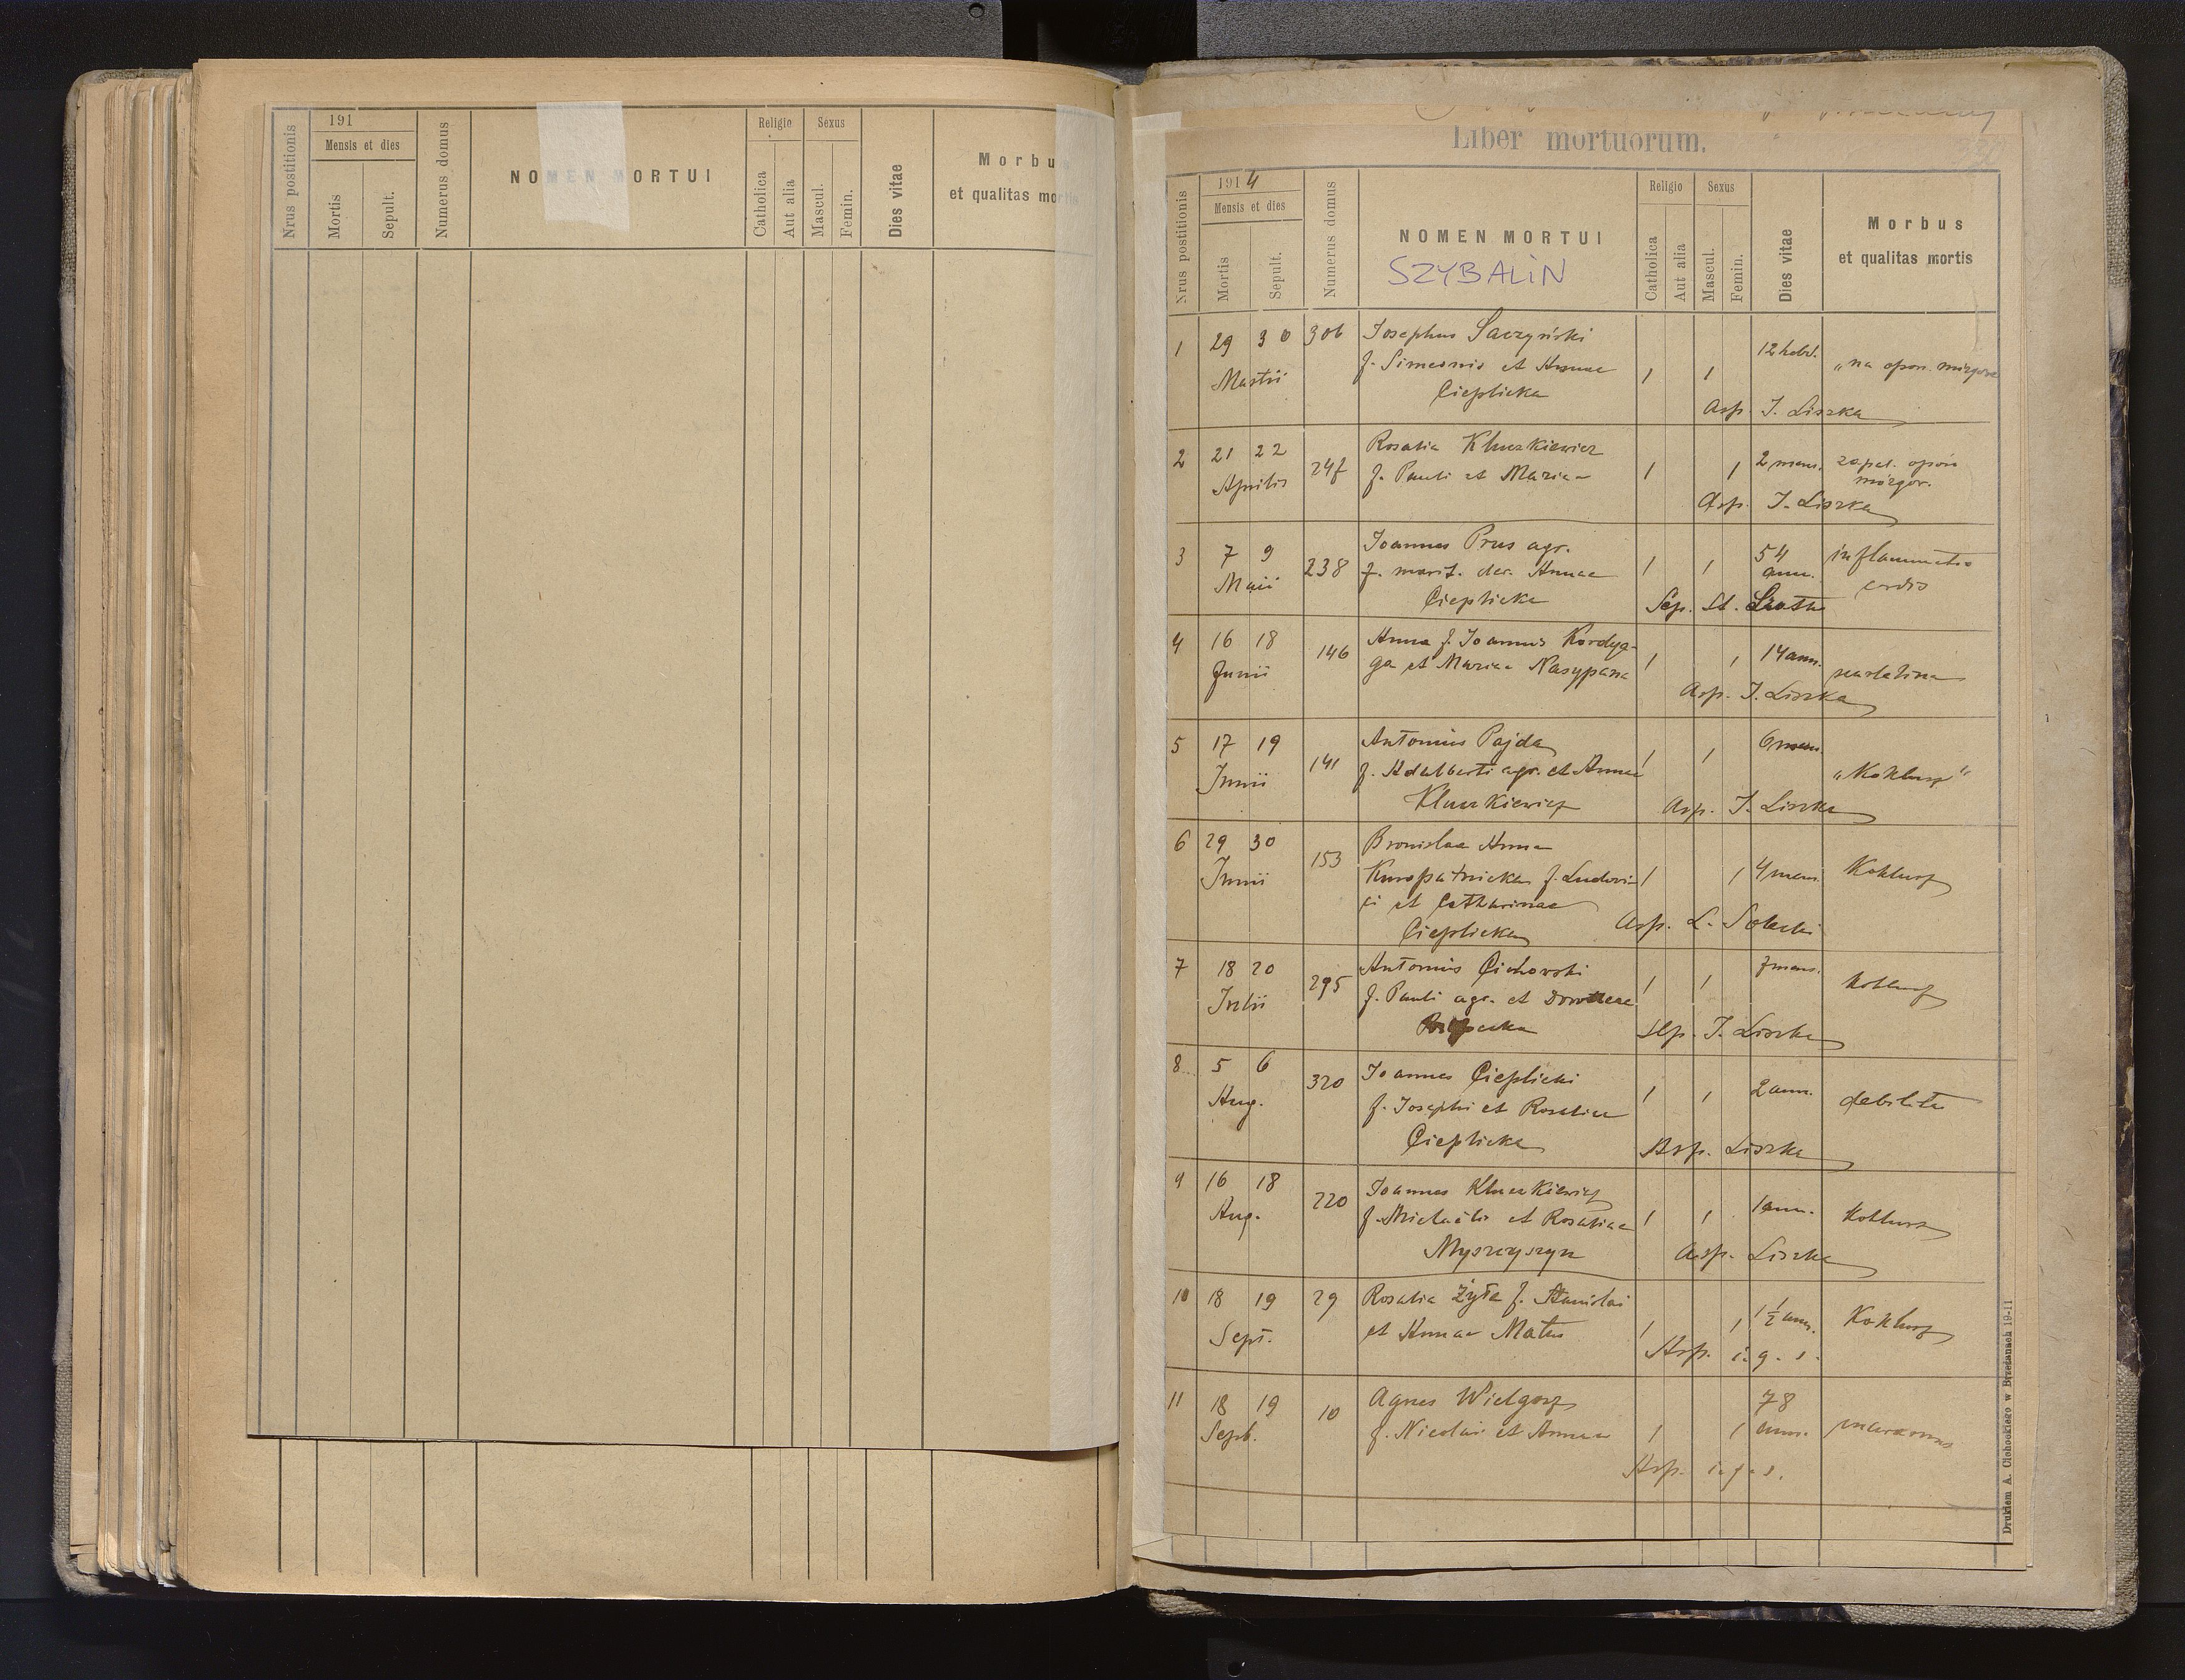 191
Mensis et dies
Nrus postitionis
Mortis
Sepult.
Numerus domus
NOMEN MORTUI
Religio
Catholica
Aut alia
Sexus
Mascul.
Femin.
Dies vitae
Morbu
et qualitas mor
Liber mortuorum.
Nrus postitionis
1914
Mensis et dies
Mortis
Sepult.
Numerus domus
NOMEN MORTUI
SZYBALIN
Religio
Catholica
Aut alia
Sexus
Mascul.
Femin.
Dies vitae
Morbus
et qualitas mortis
1 29 30 306 Josephus
Martii f. Simeonis et Annae 1 1 12 hebd. „na opon.
Cieplicka
Asp. J. Liszka
2 21 22 247 Rosalia Kluszkiewicz
Aprilis f. Pauli et Mariae 1 1 2 mens. zapal. opon
mózgow.
Asp. J. Liszka
3 7 9 238 Joannes Prus agr.
Maii f. marit. der. Annae 1 1 54 ann. inflammatio
Cieplicka cordis
Sep. St.
4 16 18 146 Anna f. Joannis Kordya-
Junii ga et Mariae Nasypana 1 1 14 ann. scarlatina
Asp. J. Liszka
5 17 19 141 Antonius Pajda 1 1 6 mens.
Junii f. Adalberti agr. et Annae „Koklusz“
Kluszkiewicz Asp. J. Liszka
6 29 30 153 Bronislaa Anna
Junii Kuropatnicka f. Ludovi- 1 1 4 mens. Koklusz
ci et Catharinae
Cieplicka Asp. L. Solecki
7 18 20 295 Antonius Cichowski 1 1 7 mens. Koklusz
Julii f. Pauli agr. et Dorotheae
Asp. J. Liszka
8 5 6 320 Joannes Cieplicki
Aug. f. Josephi et Rosaliae 1 1 2 ann. debilitas
Cieplicka Asp. Liszka
9 16 18 220 Joannes Kluszkiewicz
Aug. f. Michaëlis et Rosaliae 1 1 1 ann. Koklusz
Myszczyszyn Asp. Liszka
10 18 19 29 Rosalia Żyła f. Stanislai
Sept. et Annae Matus 1 1 1 1/2 ann. Koklusz
Asp. i. q. s.
11 18 19 10 Agnes Wielgosz 78
Sept. f. Nicolai et Annae 1 1 ann. marasmus
Asp. i. q. s.
Drukiem A. Cichockiego w Brzeżanach 19-11